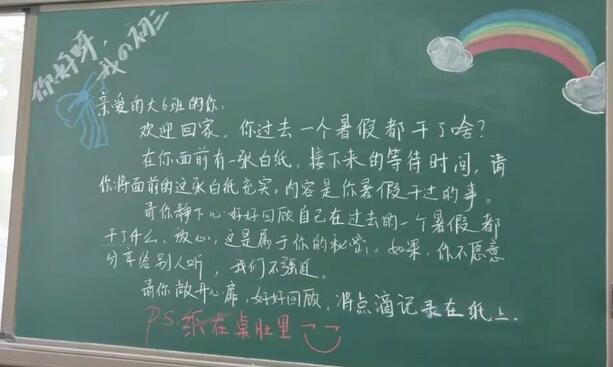 你好呀，
我の初三
亲爱的大6班的你：
欢迎回家。你过去一个暑假都干了啥？
在你面前有一张白纸，接下来的等待时间，请
你将面前的这张白纸充实，内容是你暑假干过的事。
请你静下心好好回顾自己在过去的一个暑假都
干了什么，放心，这是属于你的秘密。如果，你不愿意
分享给别人听，我们不强迫。
请你敞开心扉，好好回顾，将点滴记录在纸上．
PS：纸在桌肚里